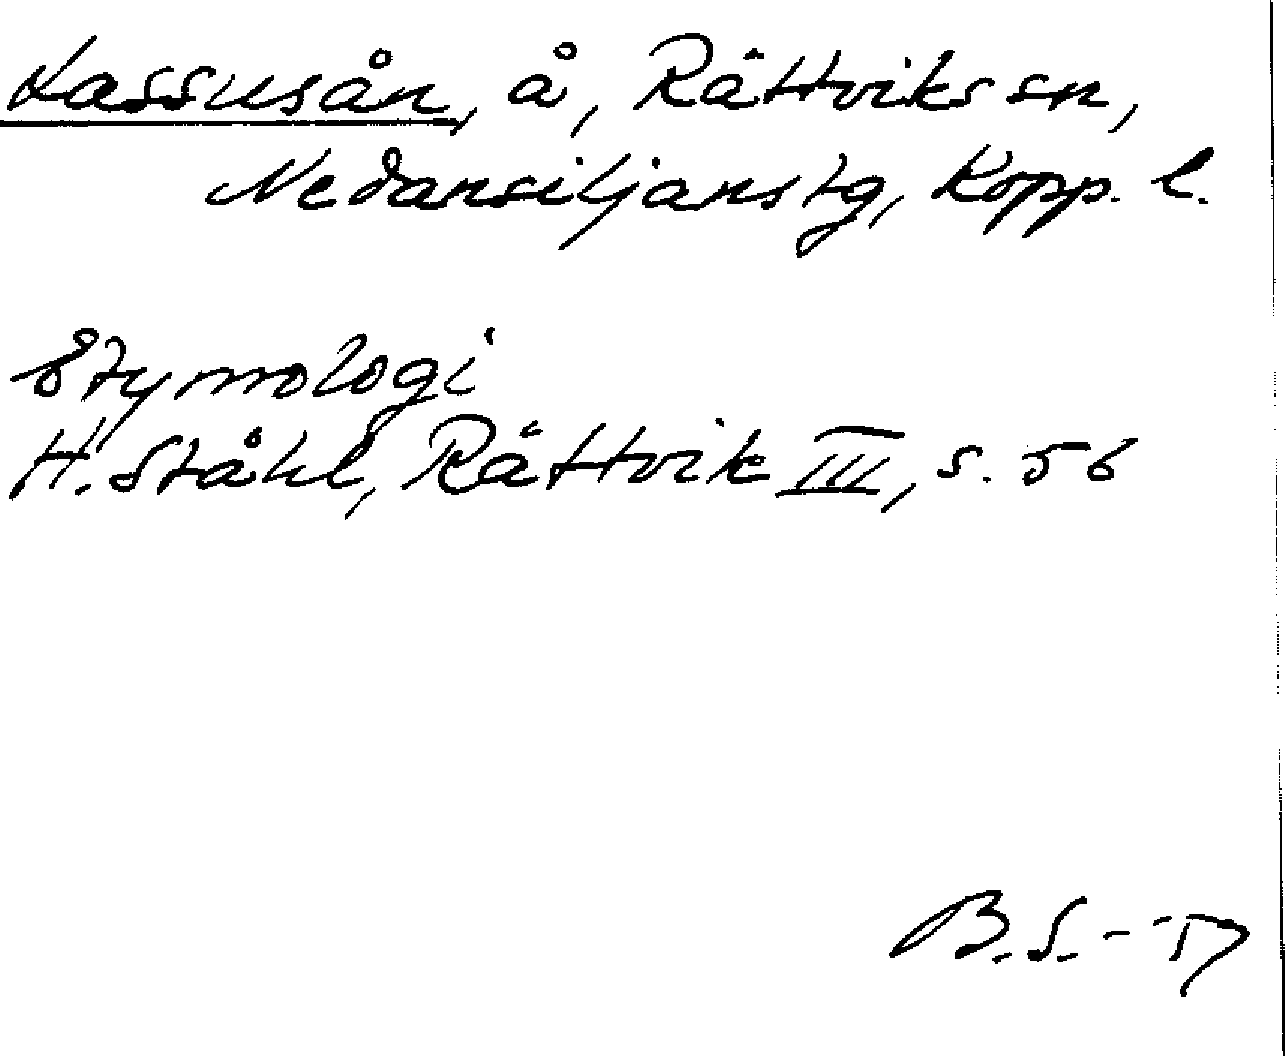 Lassusån, å, Rättviks sn,
Nedansiljans tg, Kopp. l.
Etymologi
H. Ståhl, Rättvik III, s. 56
B.S. -57